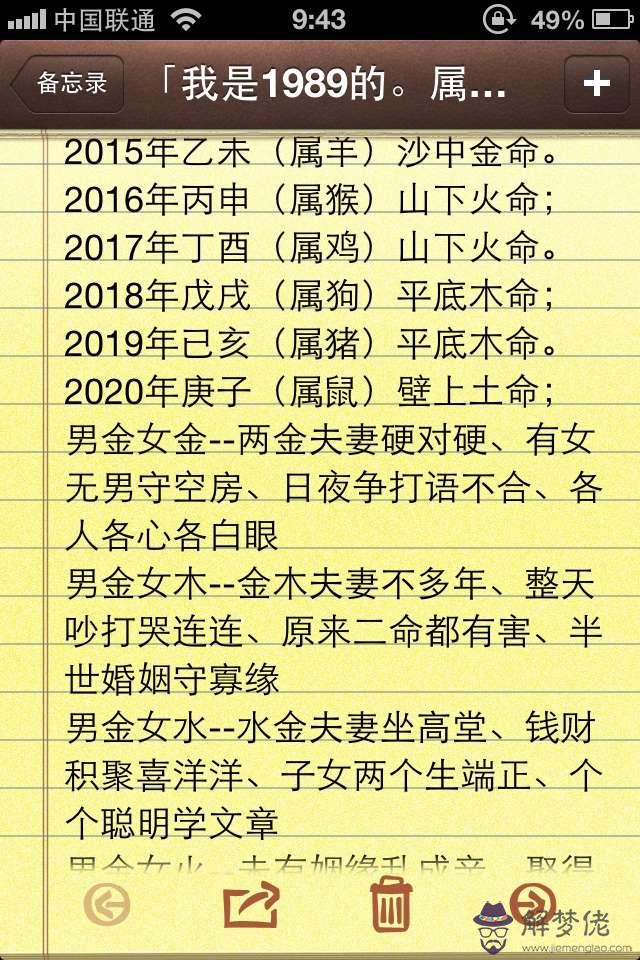 中国联通 9:43 49%
备忘录 「我是1989的。属...
2015年乙未（属羊）沙中金命。
2016年丙申（属猴）山下火命；
2017年丁酉（属鸡）山下火命。
2018年戊戌（属狗）平底木命；
2019年已亥（属猪）平底木命。
2020年庚子（属鼠）壁上土命；
男金女金--两金夫妻硬对硬、有女
无男守空房、日夜争打语不合、各
人各心各白眼
男金女木--金木夫妻不多年、整天
吵打哭连连、原来二命都有害、半
世婚姻守寡缘
男金女水--水金夫妻坐高堂、钱财
积聚喜洋洋、子女两个生端正、个
个聪明学文章
男金女火--未有姻缘乱成亲、娶得
解梦佬
www.jiemenglao.com